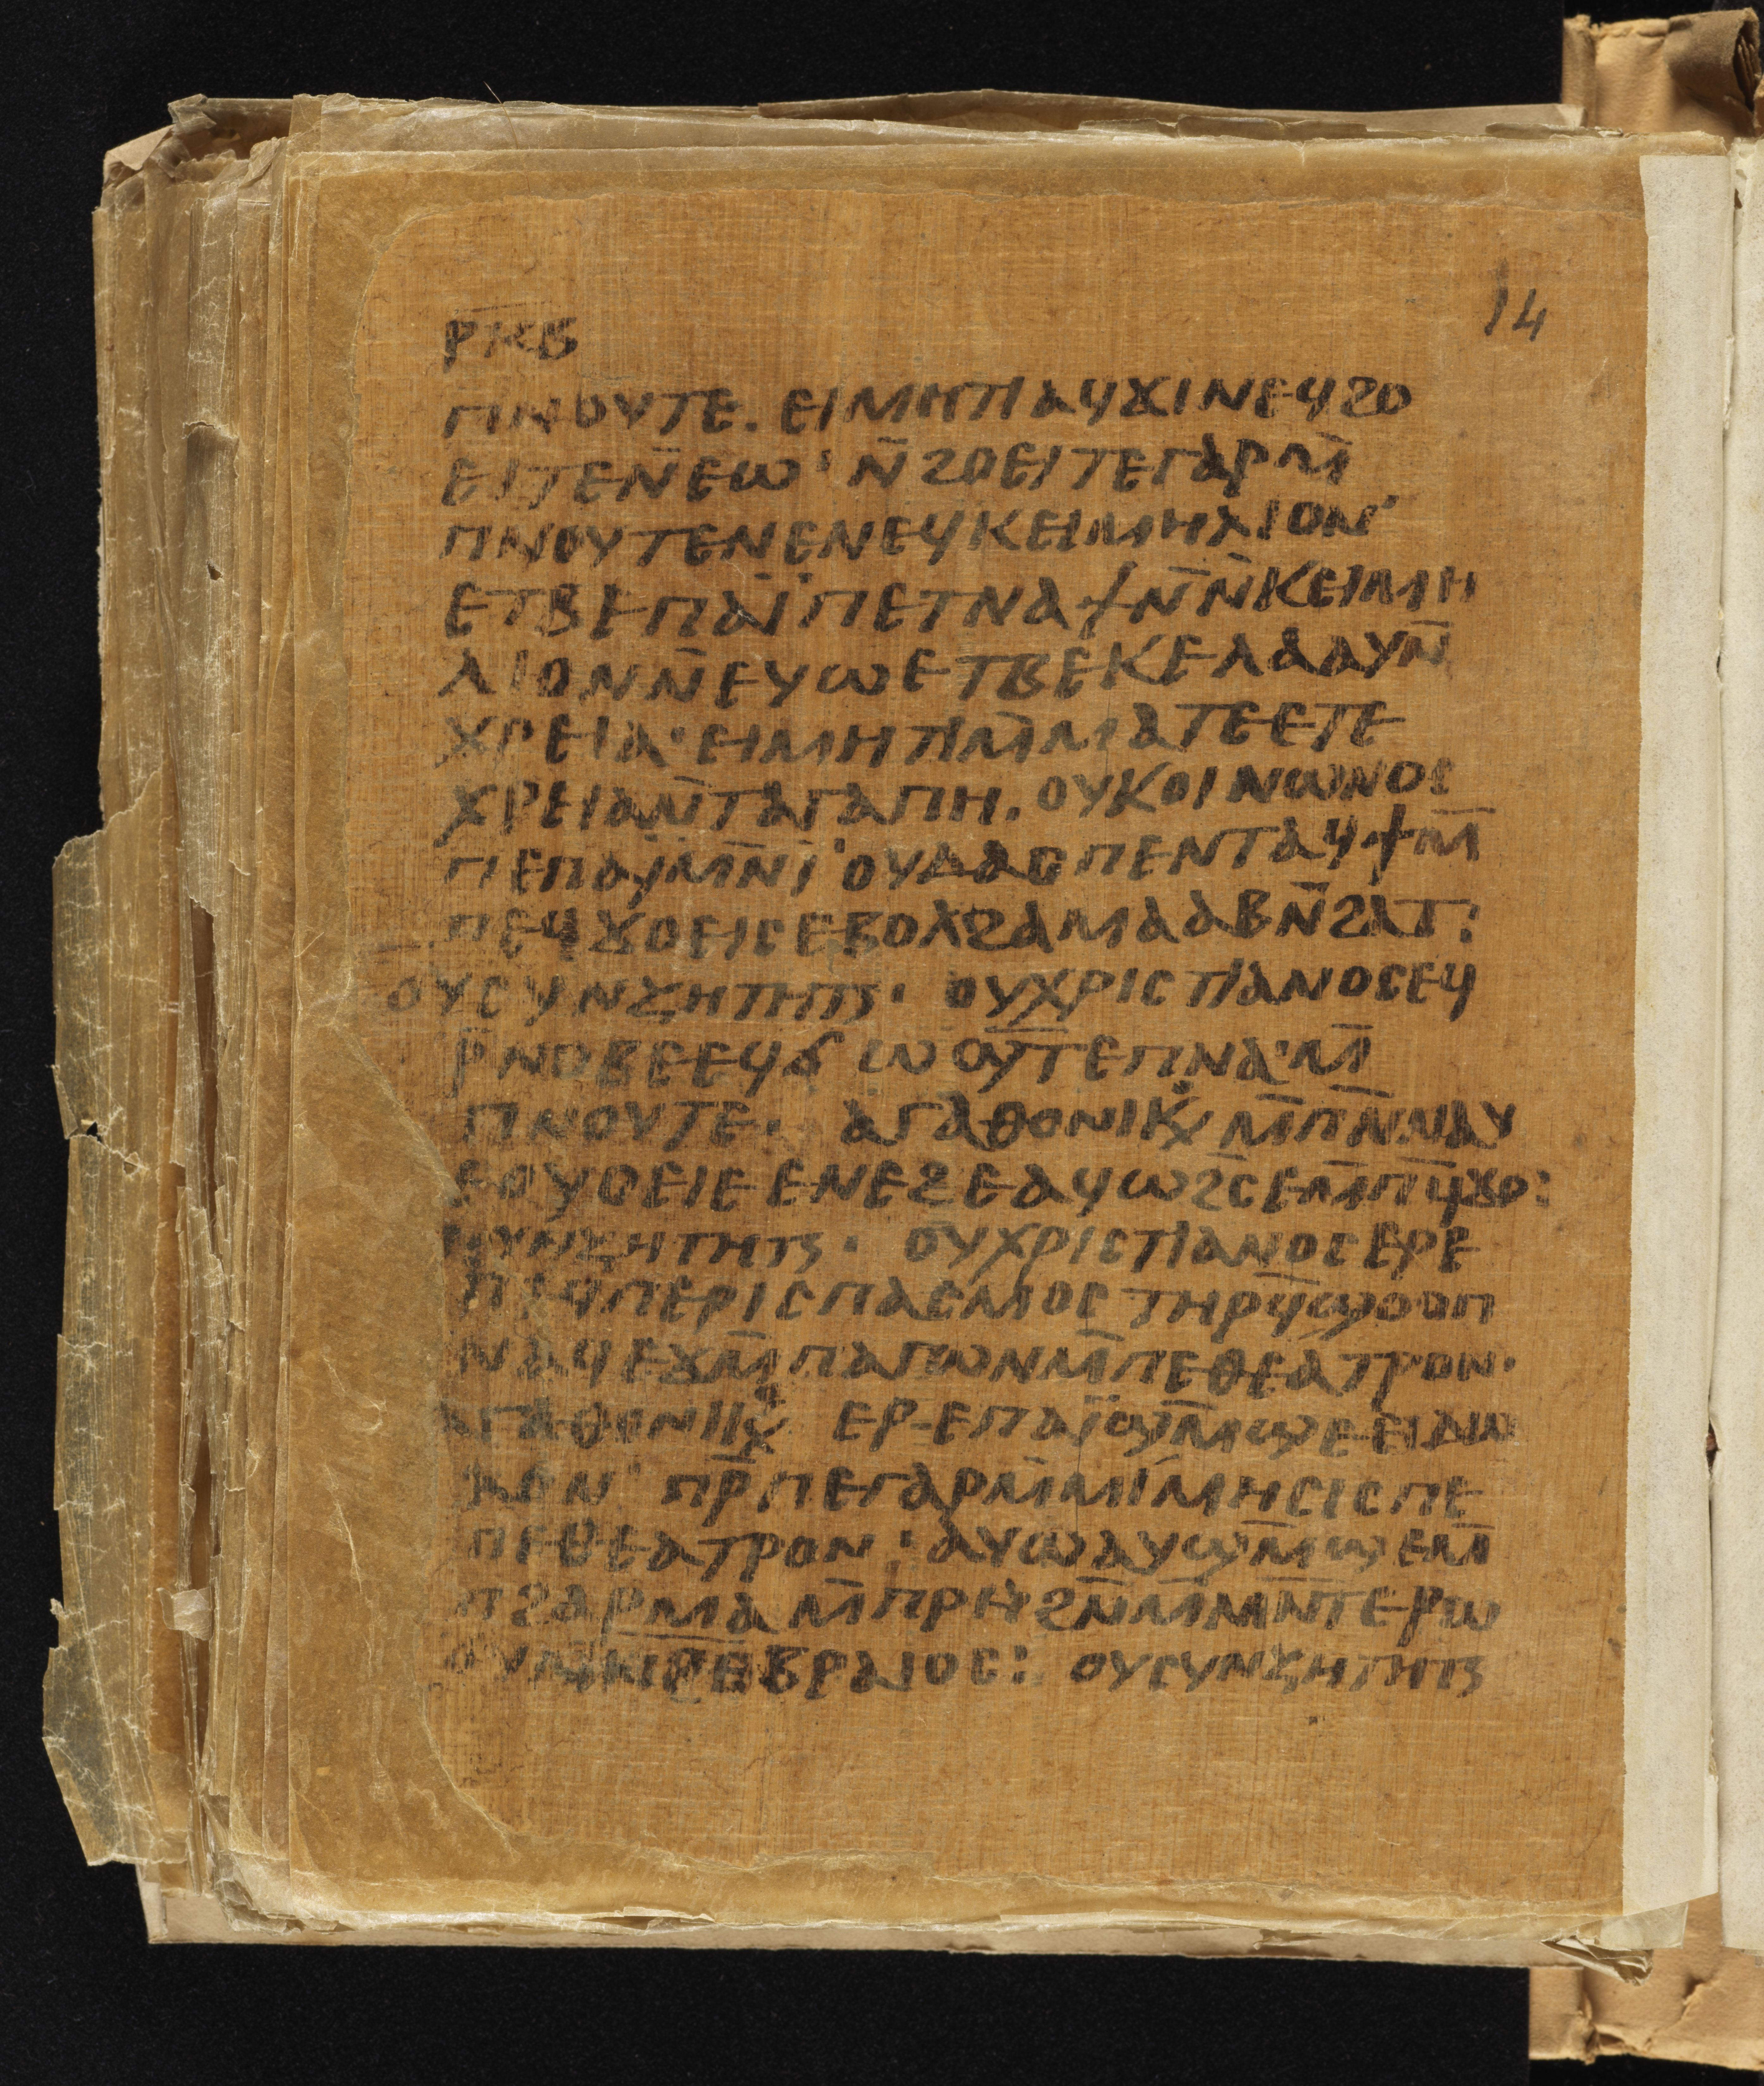 ⲣⲕⲃ
14
ⲡⲛⲟⲩⲧⲉ. ⲉⲓⲙⲏⲧⲓ ⲁϥϫⲓ ⲛⲉϥϩⲟ
ⲉⲓⲧⲉ ⲛ̄ⲉⲱ· ⲛ̄ϩⲟⲉⲓⲧⲉ ⲅⲁⲣ ⲙ̄
ⲡⲛⲟⲩⲧⲉ ⲛⲉ ⲛⲉϥⲕⲉⲓⲙⲏⲗⲓⲟⲛ
ⲉⲧⲃⲉ ⲡⲁⲓ̈ ⲡⲉⲧⲛⲁϯ ⲛ̄ⲛ̄ⲕⲉⲓⲙⲏ
ⲗⲓⲟⲛ ⲛ̄ⲉⲩⲱ ⲉⲧⲃⲉ ⲕⲉⲗⲁⲁⲩ ⲛ̄
ⲭⲣⲉⲓⲁ· ⲉⲓⲙⲏⲧⲓ ⲙ̄ⲙⲁⲧⲉ ⲉⲧⲉ
ⲭⲣⲉⲓⲁ ⲛ̄ⲧⲁⲅⲁⲡⲏ. ⲟⲩⲕⲟⲓⲛⲱⲛⲟⲥ
ⲡⲉ ⲡⲁⲓ̈ ⲙⲛ̄ ⲓ̈ⲟⲩⲇⲁⲥ ⲡⲉⲛⲧⲁϥϯ ⲙ̄
ⲡⲉϥϫⲟⲉⲓⲥ ⲉⲃⲟⲗ ϩⲁ ⲙⲁⲁⲃ ⲛ̄ϩⲁⲧ:
ⲟⲩⲥⲩⲛⲍⲏⲧⲏⲧⲏⲥ· ⲟⲩⲭⲣⲓⲥⲧⲓⲁⲛⲟⲥ ⲉϥ
ⲣ̄ⲛⲟⲃⲉ ⲉϥϭⲱ ⲟⲩⲧⲉ ⲡⲛⲁ· ⲙ̄
ⲡⲛⲟⲩⲧⲉ· ⲁⲅⲁⲑⲟⲛⲓⲕⲟⲩ ⲙ̄ⲡⲛ̄ⲛⲁⲩ
ⲉⲟⲩⲟⲉⲓⲉ ⲉⲛⲉϩ ⲉⲁϥⲱϩⲥ ⲉⲙ̄ⲡϥ̄ϫⲟ:
ⲟⲩⲭⲣⲓⲥⲧⲓⲁⲛⲟⲥ ⲉⲣⲉ
ⲡⲉϥⲡⲉⲣⲓⲥⲡⲁⲥⲙⲟⲥ ⲧⲏⲣϥ̄ ϣⲟⲟⲡ
ⲛⲁϥ ⲉϫⲙ̄ ⲡⲁⲅⲱⲛ ⲙ̄ⲡⲉⲑⲉⲁⲧⲣⲟⲛ·
ⲁⲅⲁⲑⲟⲛⲓⲕⲟⲩ ⲉⲣⲉ ⲡⲁⲓ̈ ϣⲙ̄ϣⲉ ⲉⲓⲇⲱ
ⲗⲟⲛ ⲡⲣ̄ⲡⲉ ⲅⲁⲣ ⲙ̄ⲙⲓⲙⲏⲥⲓⲥ ⲡⲉ
ⲡⲉⲑⲉⲁⲧⲣⲟⲛ· ⲁⲩⲱ ⲁⲩϣⲙ̄ϣⲉ ⲙ̄
ⲡϩⲁⲣⲙⲁ ⲙ̄ⲡⲣⲏ ϩⲛ̄ ⲙ̄ⲙⲛ̄ⲧⲉⲣⲱ
ϩⲉⲃⲣⲁⲓⲟⲥ: ⲟⲩⲥⲩⲛⲍⲏⲧⲏⲧⲏⲥ